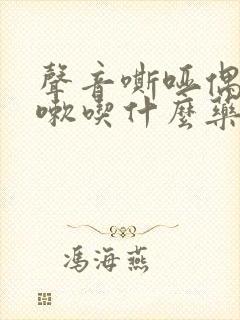 聲音嘶啞偶
嗽喫什麼藥
馮海燕